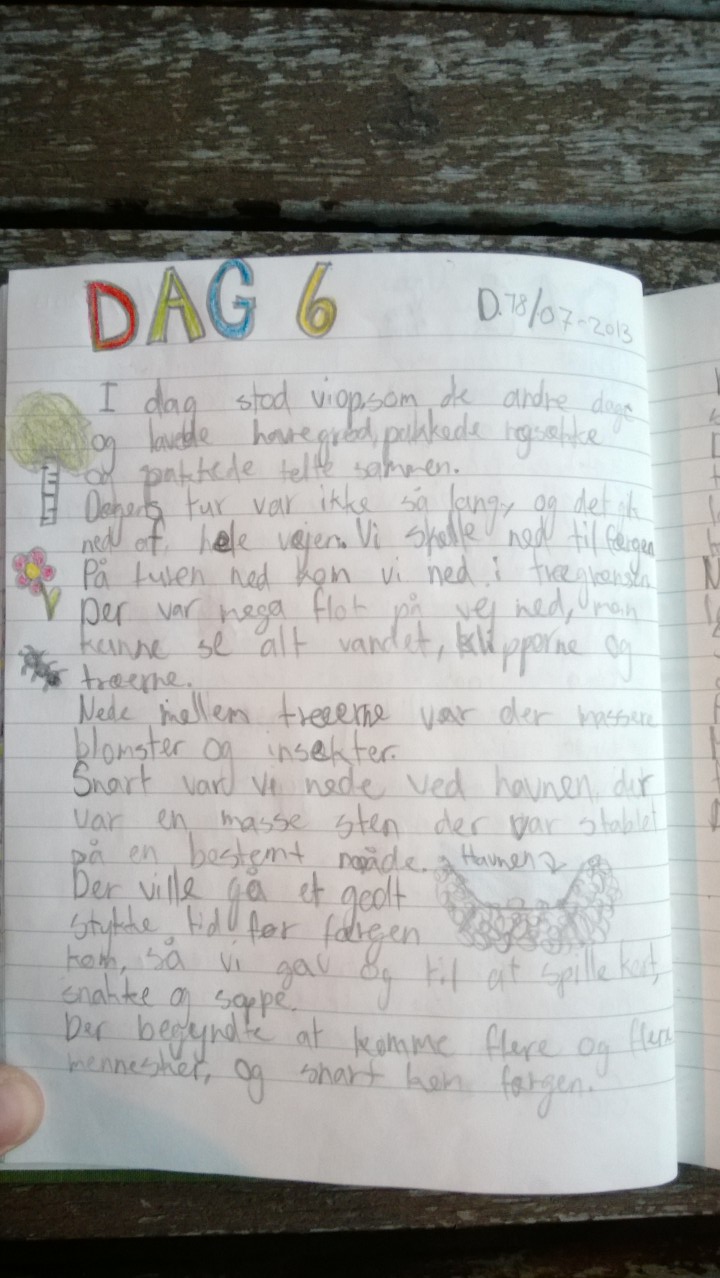 DAG 6
D.18/07-2013
I dag stod vi op, som de andre dage
og lavede havregrød, pakkede rygsække
og pakkede telte sammen.
Dagens tur var ikke så lang, og det gik
ned af hele vejen. Vi skulle ned til færgen
På turen ned kom vi ned i trægrænsen.
Der var mega flot på vej ned, man
kunne se alt vandet, klipporne og
træerne.
Nede mellem træerne var der massere
blomster og insekter.
Snart var vi nede ved havnen, der
var en masse sten der var stablet
på en bestemt måde. Havnen
Der ville gå et godt
stykke tid før færgen
kom, så vi gav og til at spille kort,
snakke og soppe.
Der begyndte at komme flere og flere
mennesker, og snart kom færgen.